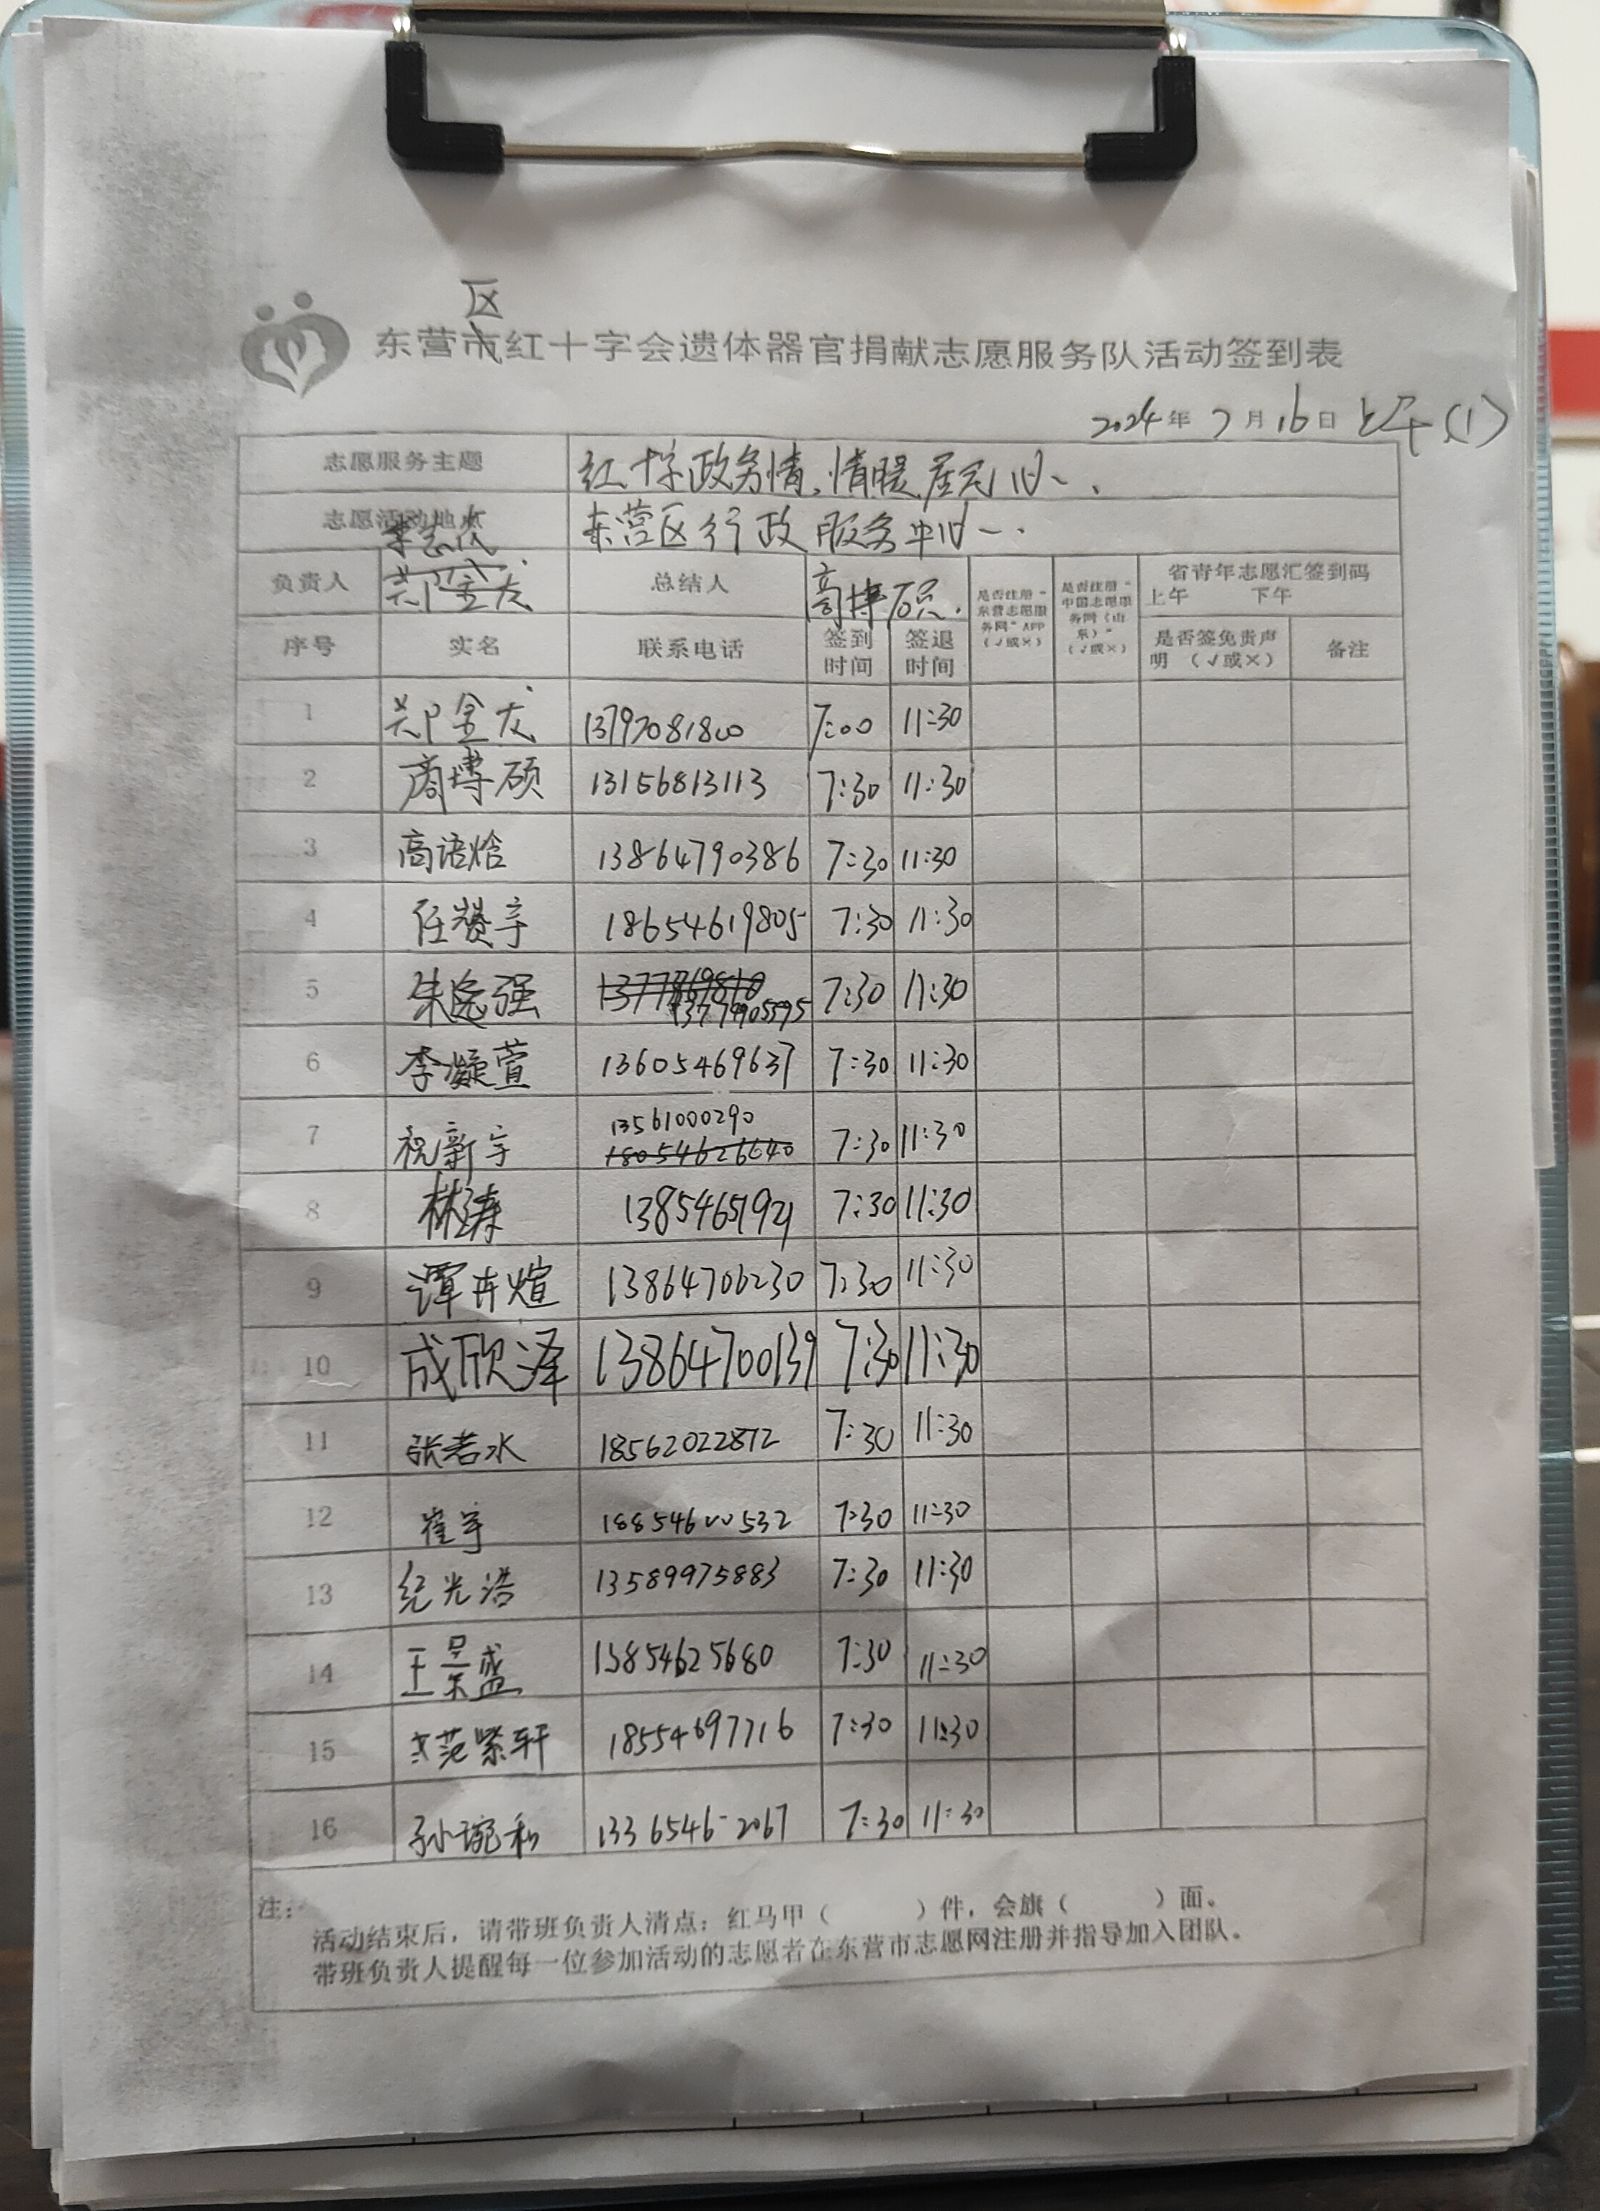 区
东营市红十字会遗体器官捐献志愿服务队活动签到表
2024年7月16日 上午(1)
志愿服务主题 红十字政务情、情暖居民心、
志愿活动地点 东营区行政服务中心、
李志成
负责人 郑金龙 总结人 高博硕 是否注册“东营志愿服务网”APP(√或×) 是否注册“中国志愿服务网(山东)”(√或×) 省青年志愿汇签到码
上午 下午
序号 实名 联系电话 签到时间 签退时间 是否签免责声明 (√或×) 备注
1 郑金龙 13797081800 7:00 11:30
2 商博硕 13156813113 7:30 11:30
3 高语焓 13864790386 7:30 11:30
4 任赞宇 18654619805 7:30 11:30
5 朱逸强 7:30 11:30
6 李凝萱 13605469637 7:30 11:30
7 祝新宇 13561000290 7:30 11:30
18054626640
8 林涛 7:30 11:30
9 谭卉煊 13864706230 7:30 11:30
10 成欣泽 13864700139 7:30 11:30
11 张若水 18562022872 7:30 11:30
12 崔宇 18854600532 7:30 11:30
13 纪光浩 13589975883 7:30 11:30
14 王景盛 13854625680 7:30 11:30
15 范紫轩 18554697716 7:30 11:30
16 孙琬和 1336546-2067 7:30 11:30
注:
活动结束后，请带班负责人清点：红马甲（ ）件，会旗（ ）面。
带班负责人提醒每一位参加活动的志愿者在东营市志愿网注册并指导加入团队。